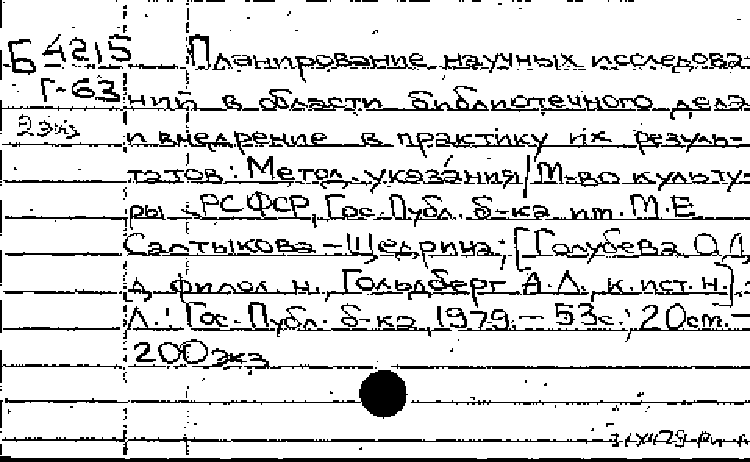 Б 4215 Планирование научных исследова-
Г-63 ний в области библиотечного дела
2 экз и внедрение в практику их резуль-
татов: Метод. указания/М-во культу-
ры РСФСР, Гос. Публ. б-ка им. М.Е
Салтыкова-Щедрина; [Голубева О.Д,
д. филол. н., Гольдберг А.Л., к. ист. н.].-
Л.: Гос. Публ. б-ка, 1979.- 53с.; 20см.-
200экз